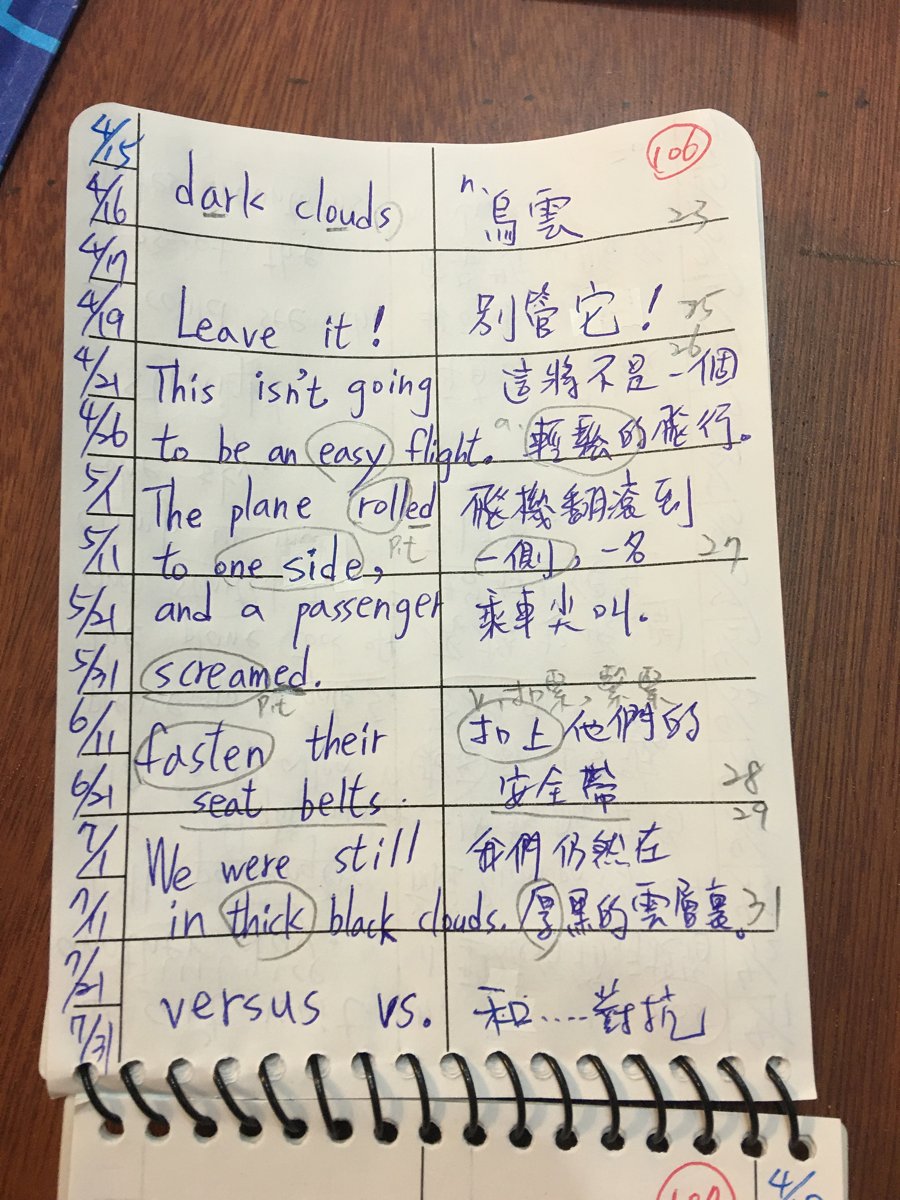 106
4/15
4/16 dark clouds n. 烏雲 23
4/17
4/19 Leave it! 別管它! 25
26
4/21 This isn't going 這將不是一個
4/26 to be an easy flight. a. 輕鬆的飛行。
5/1 The plane rolled 飛機翻滾到
p.t
5/11 to one side, 一側, 一名 27
5/21 and a passenger 乘車尖叫.
5/31 screamed.
p.t v. 扣緊, 繫緊
6/11 fasten their 扣上他們的
6/21 seat belts. 安全帶 28
29
7/1 We were still 我們仍然在
7/11 in thick black clouds. 厚黑的雲層裏。 31
7/21
versus vs. 和....對抗
7/31